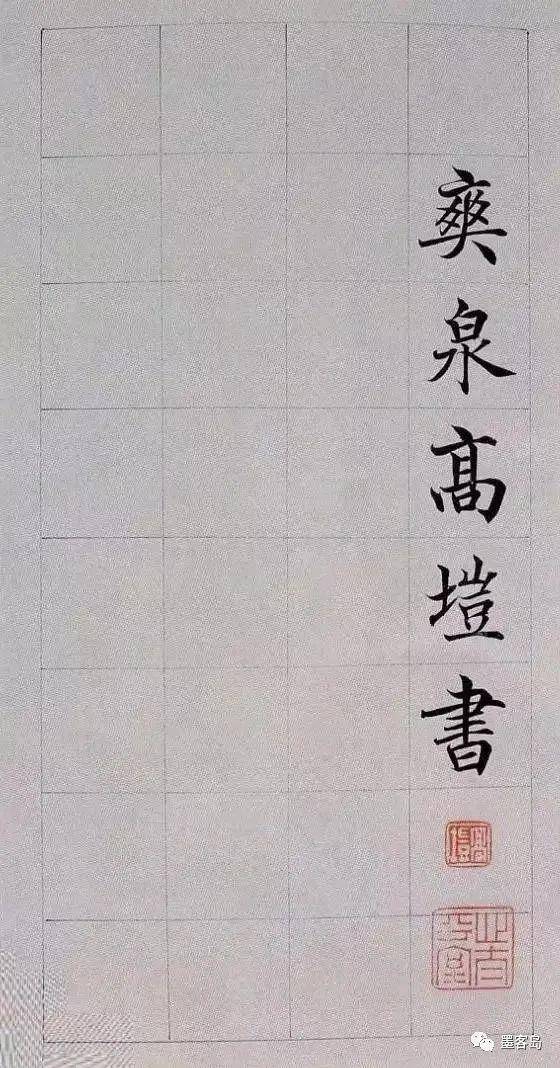 爽泉高塏書
墨客岛